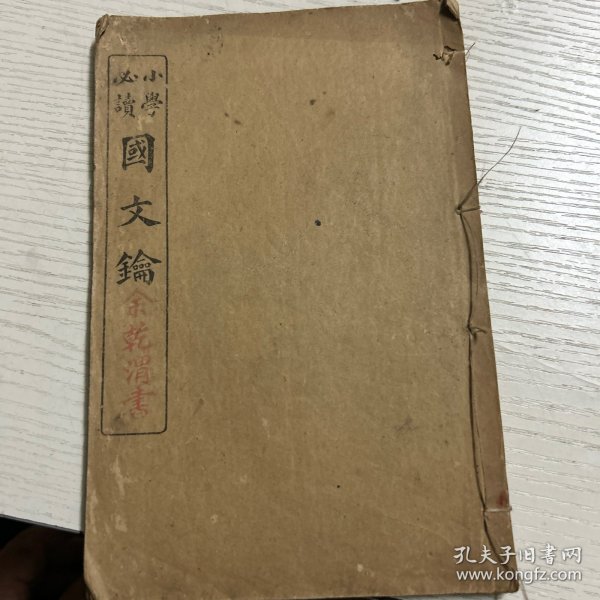 小學
必讀
國文鑰
余乾渭書
孔夫子旧书网
www.kongfz.com